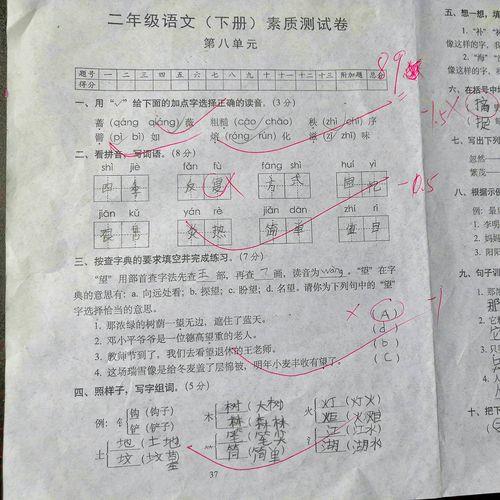 二年级语文（下册）素质测试卷
第八单元
题号 一 二 三 四 五 六 七 八 九 十 十一 十二 十三 附加题 总分
得分
89
一、用“√”给下面的加点字选择正确的读音。（3分）
蔷（qáng qiáng）薇 粗糙（cāo chāo） 秩（zhì chì）序
譬（pì bì）如 熔（róng rún）化 滋（zī zhī）味
二、看拼音，写词语。（8分）
shì jiè fǎn fù fāng shì huí yì
四季 反复 方式 回忆
jiān kǔ yán rè jiǎn dān zhí rì
炎热 简单 值日
-0.5
三、按查字典的要求填空并完成练习。（7分）
“望”用部首查字法先查王部，再查7画，读音为wàng。“望”在字
典的意思有：a. 向远处看；b. 探望；c. 盼望；d. 名望。请你为下列句中的“望”
字选择恰当的意思。
1. 那浓绿的树荫一望无边，遮住了蓝天。（A）
-1
2. 邓小平爷爷是一位德高望重的老人。（d）
3. 教师节到了，我们去看望退休的王老师。（b）
4. 这场瑞雪像是给冬麦盖了层棉被，明年小麦丰收有望了。（C）
四、照样子，写字组词。（5分）
例：钅 钩（钩子） 铲（铲子）
木 树（大树） 林（森林）
火 灯（灯火）
土 地（土地） 坟（坟墓）
笔（笔尖） 筒
氵 江（江水） 湖（湖水）
37
五、想一想，填
1. “补”
像这样的字，我
2. “海”
像这样的字，
六、在括号中填
-1.5
七、写出下列
忽然——
繁茂——
八、根据示例
例：最
1. 李明
2. 妈妈
3. 阳阳
九、句子训
1. 那浓
2. 它
3. 只
4.
十、把下